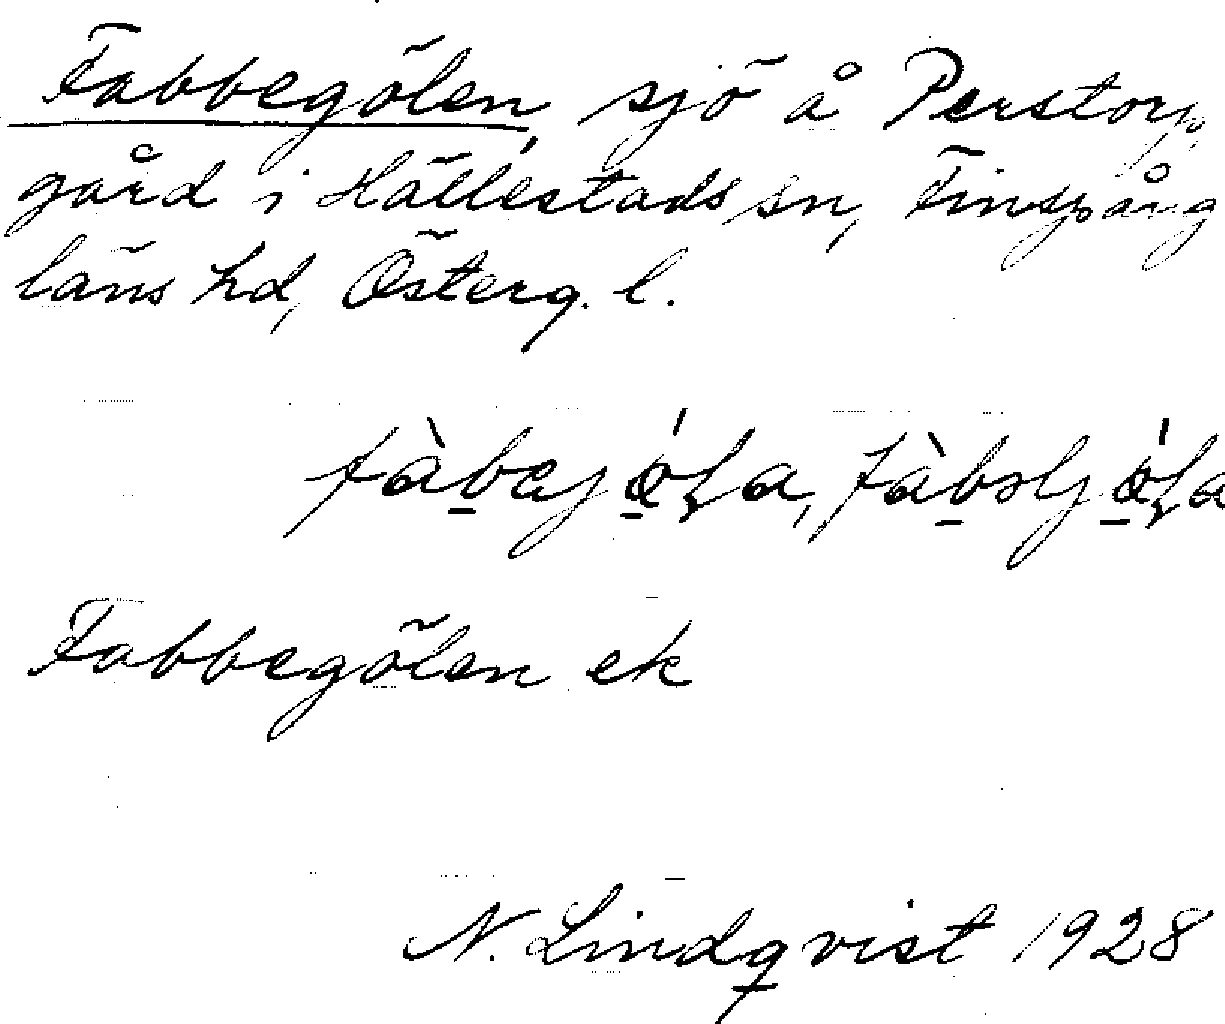 Fabbegölen, sjö å Perstorp,
gård i Hällestads sn, Finspång
läns hd, Österg. l.
Fabbegölen ek
N. Lindqvist 1928